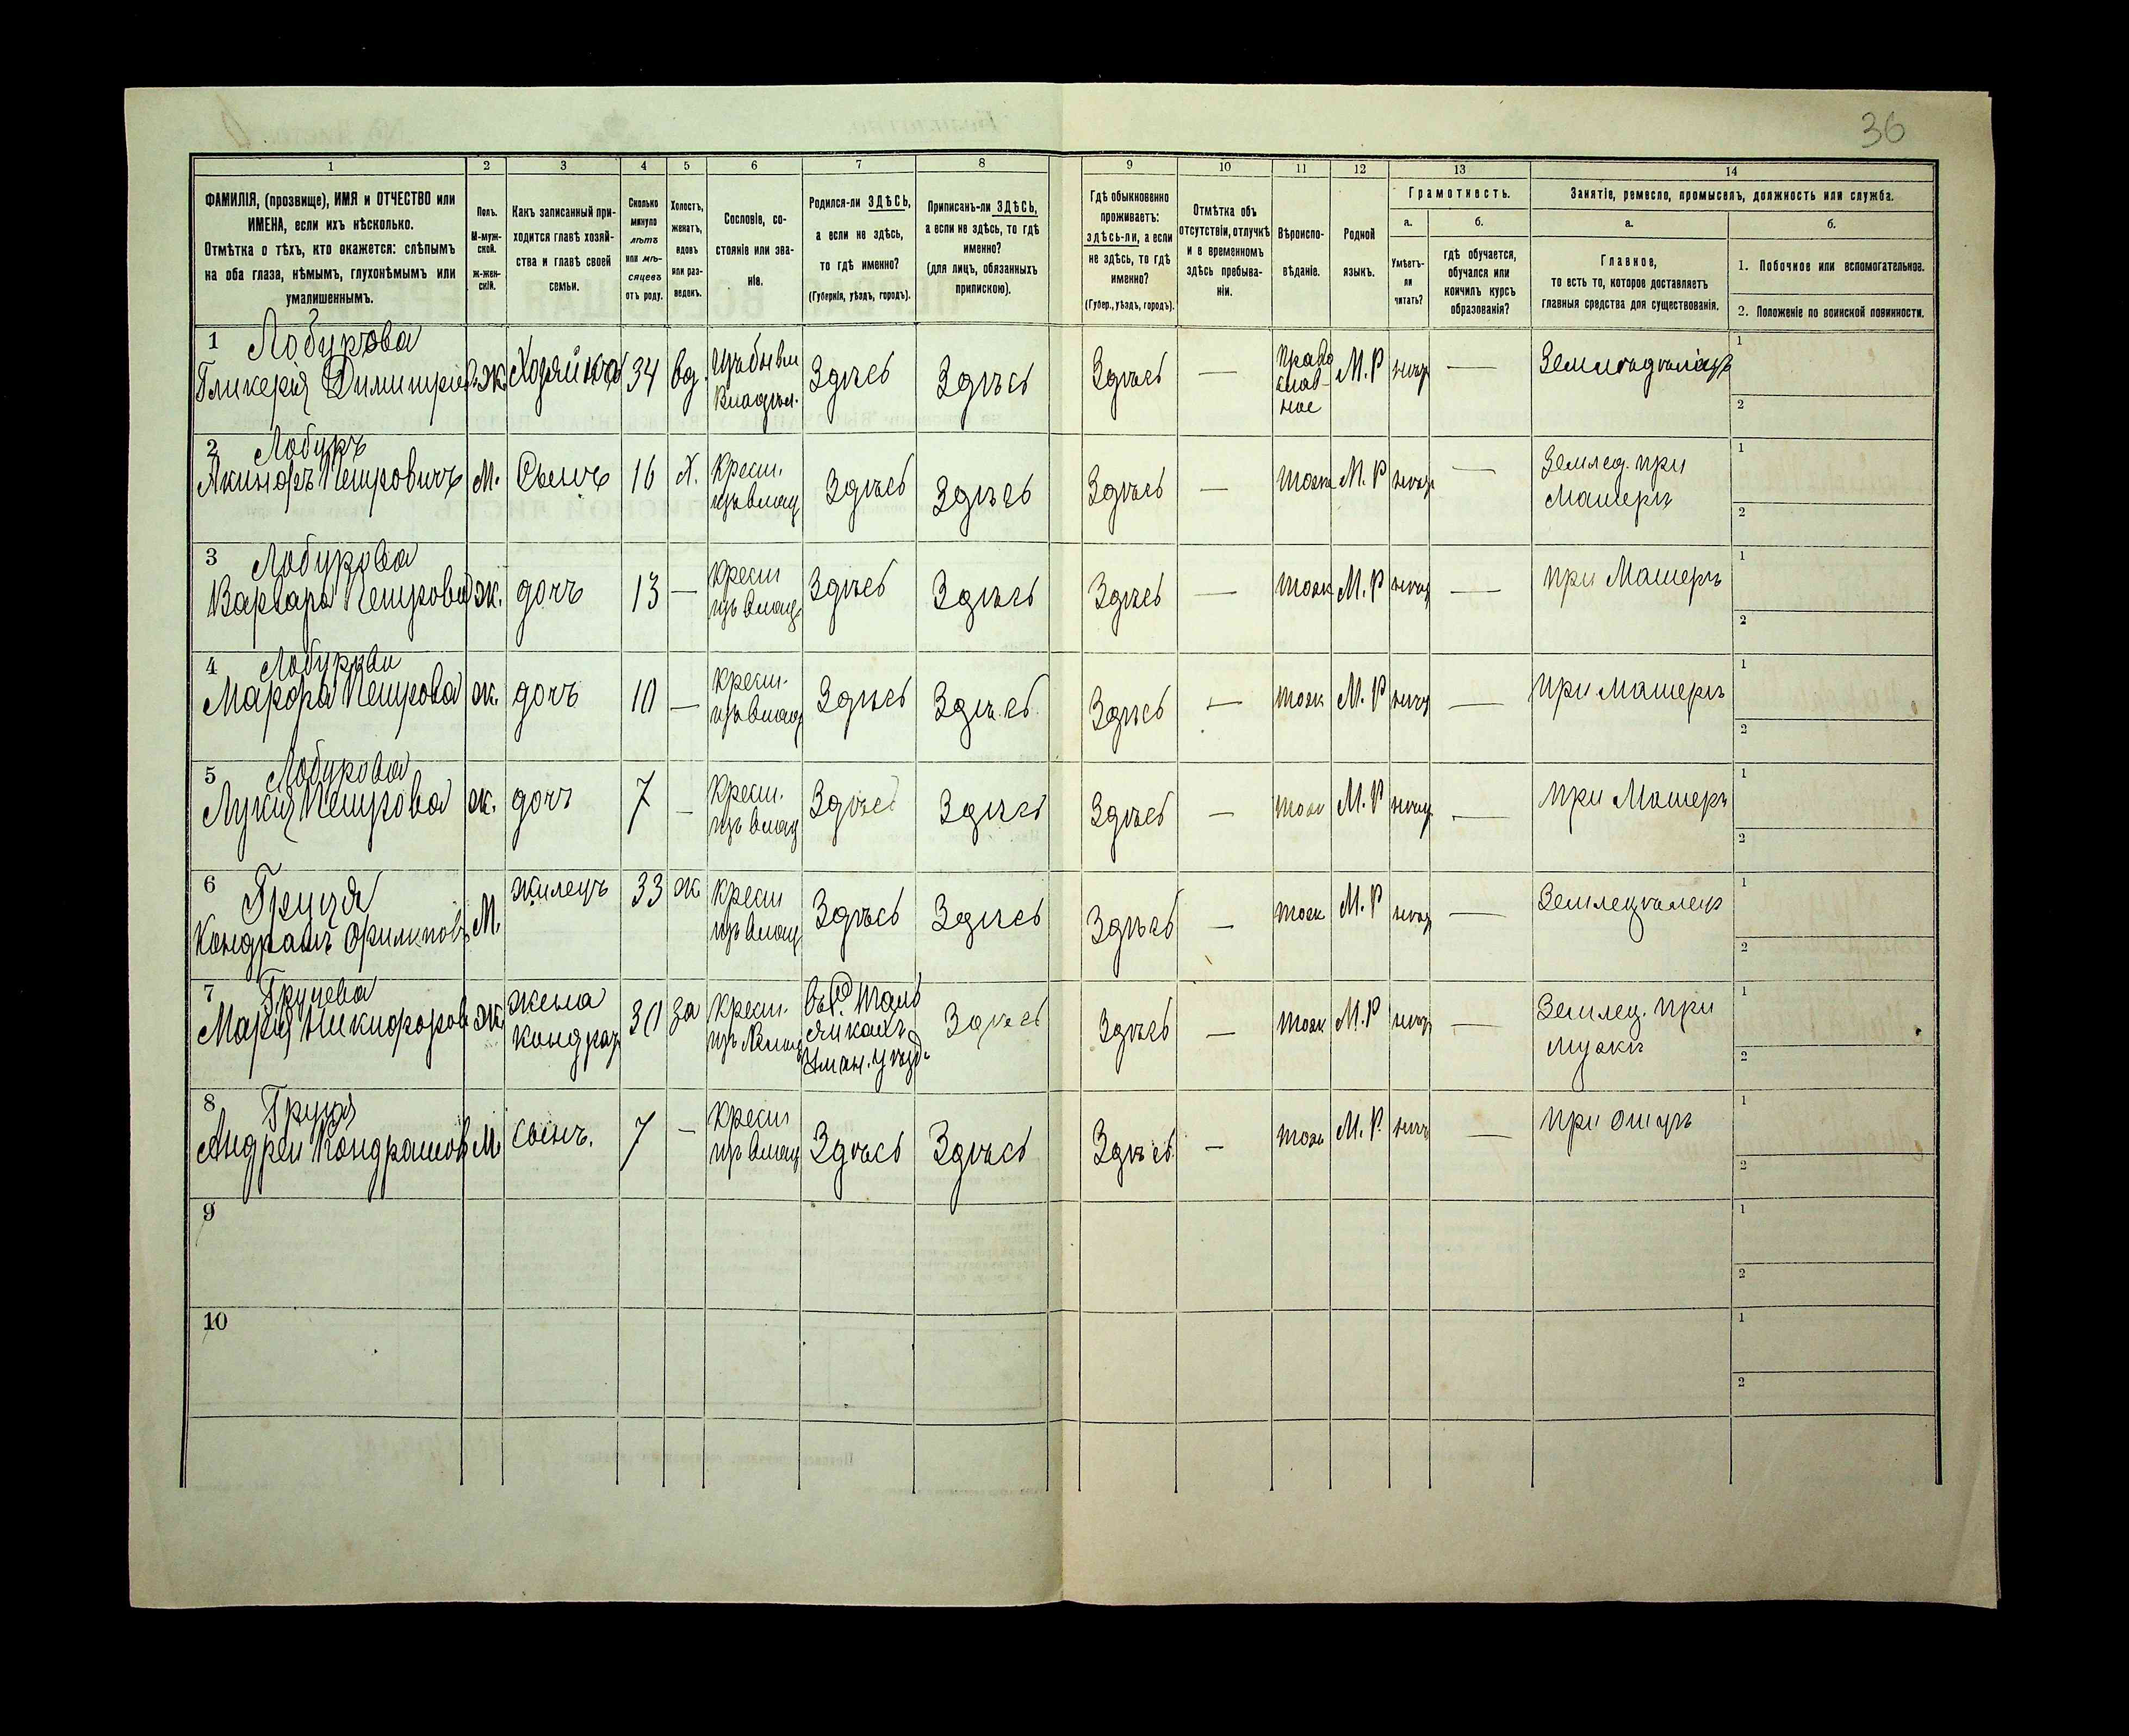 36
1 2 3 4 5 6 7 8 9 10 11 12 13 14
ФАМИЛІЯ, (прозвище), ИМЯ и ОТЧЕСТВО или
ИМЕНА, если ихъ нѣсколько.
Отмѣтка о тѣхъ, кто окажется: слѣпымъ
на оба глаза, нѣмымъ, глухонѣмымъ или
умалишеннымъ.
Полъ.
М-муж-
ской.
ж-жен-
скій.
Какъ записанный при-
ходится главѣ хозяй-
ства и главѣ своей
семьи.
Сколько
минуло
лѣтъ
или мѣ-
сяцевъ
отъ роду.
Холостъ,
женатъ,
вдовъ
или раз-
веденъ.
Сословіе, со-
стояніе или зва-
ніе.
Родился-ли ЗДѢСЬ,
а если не здѣсь,
то гдѣ именно?
(Губернія, уѣздъ, городъ).
Приписанъ-ли ЗДѢСЬ,
а если не здѣсь, то гдѣ
именно?
(для лицъ, обязанныхъ
припискою).
Гдѣ обыкновенно
проживаетъ:
здѣсь-ли, а если
не здѣсь, то гдѣ
именно?
(Губер., уѣздъ, городъ).
Отмѣтка объ
отсутствіи, отлучкѣ
и о временномъ
здѣсь пребыва-
ніи.
Вѣроиспо-
вѣданіе.
Родной
языкъ.
Грамотность.
а.
Умѣетъ-
ли
читать?
б.
гдѣ обучается,
обучался или
кончилъ курсъ
образованія?
Занятіе, ремесло, промыселъ, должность или служба.
а.
Главное,
то есть то, которое доставляетъ
главныя средства для существованія.
б.
1. Побочное или вспомогательное.
2. Положеніе по воинской повинности.
1 Лобурова
Гликерія Димитріев ж. Хозяйка 34 вд. Здѣсь Здѣсь Здѣсь — Право
слав-
ное М.Р — 1
2
2 Лобуръ
Акинфъ Петровичъ М. Сынъ 16 Х. Крест. Здѣсь Здѣсь Здѣсь — тоже М.Р — Землед. при
Матери 1
2
3 Лобурова
Варвара Петрова ж. дочь 13 — Крест Здѣсь Здѣсь Здѣсь — тоже М.Р — при Матерѣ 1
2
4 Лобурова
Марфа Петрова ж. дочь 10 — Крест. Здѣсь Здѣсь Здѣсь — тоже М.Р — при матерѣ 1
2
5 Лобурова
Лукія Петрова ж. дочь 7 — Крест. Здѣсь Здѣсь Здѣсь — тоже М.Р — при Матерѣ 1
2
6 Груця
Кондратъ Филиповъ М. жилецъ 33 ж Крест Здѣсь Здѣсь Здѣсь — тоже М.Р — 1
2
7 Груцева
Марія Никифоров ж жена
Кондрат 30 за Крест. Здѣсь Здѣсь — тоже М.Р — Землед. при
мужѣ 1
2
8 Груця
Андрей Кондратов М. сынъ. 7 — Крест Здѣсь Здѣсь Здѣсь — тоже М.Р. — при отцѣ 1
2
9 1
2
10 1
2